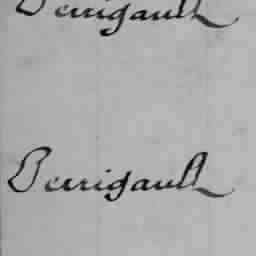 Perrigault
Perrigault